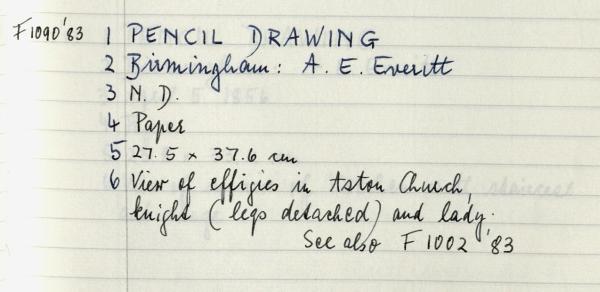 F1090'83 1 PENCIL DRAWING
2 Birmingham: A. E. Everitt
3 N. D.
4 Paper
5 27.5 x 37.6 cm
6 View of effigies in Aston Church,
knight (legs detached) and lady.
See also F1002 '83